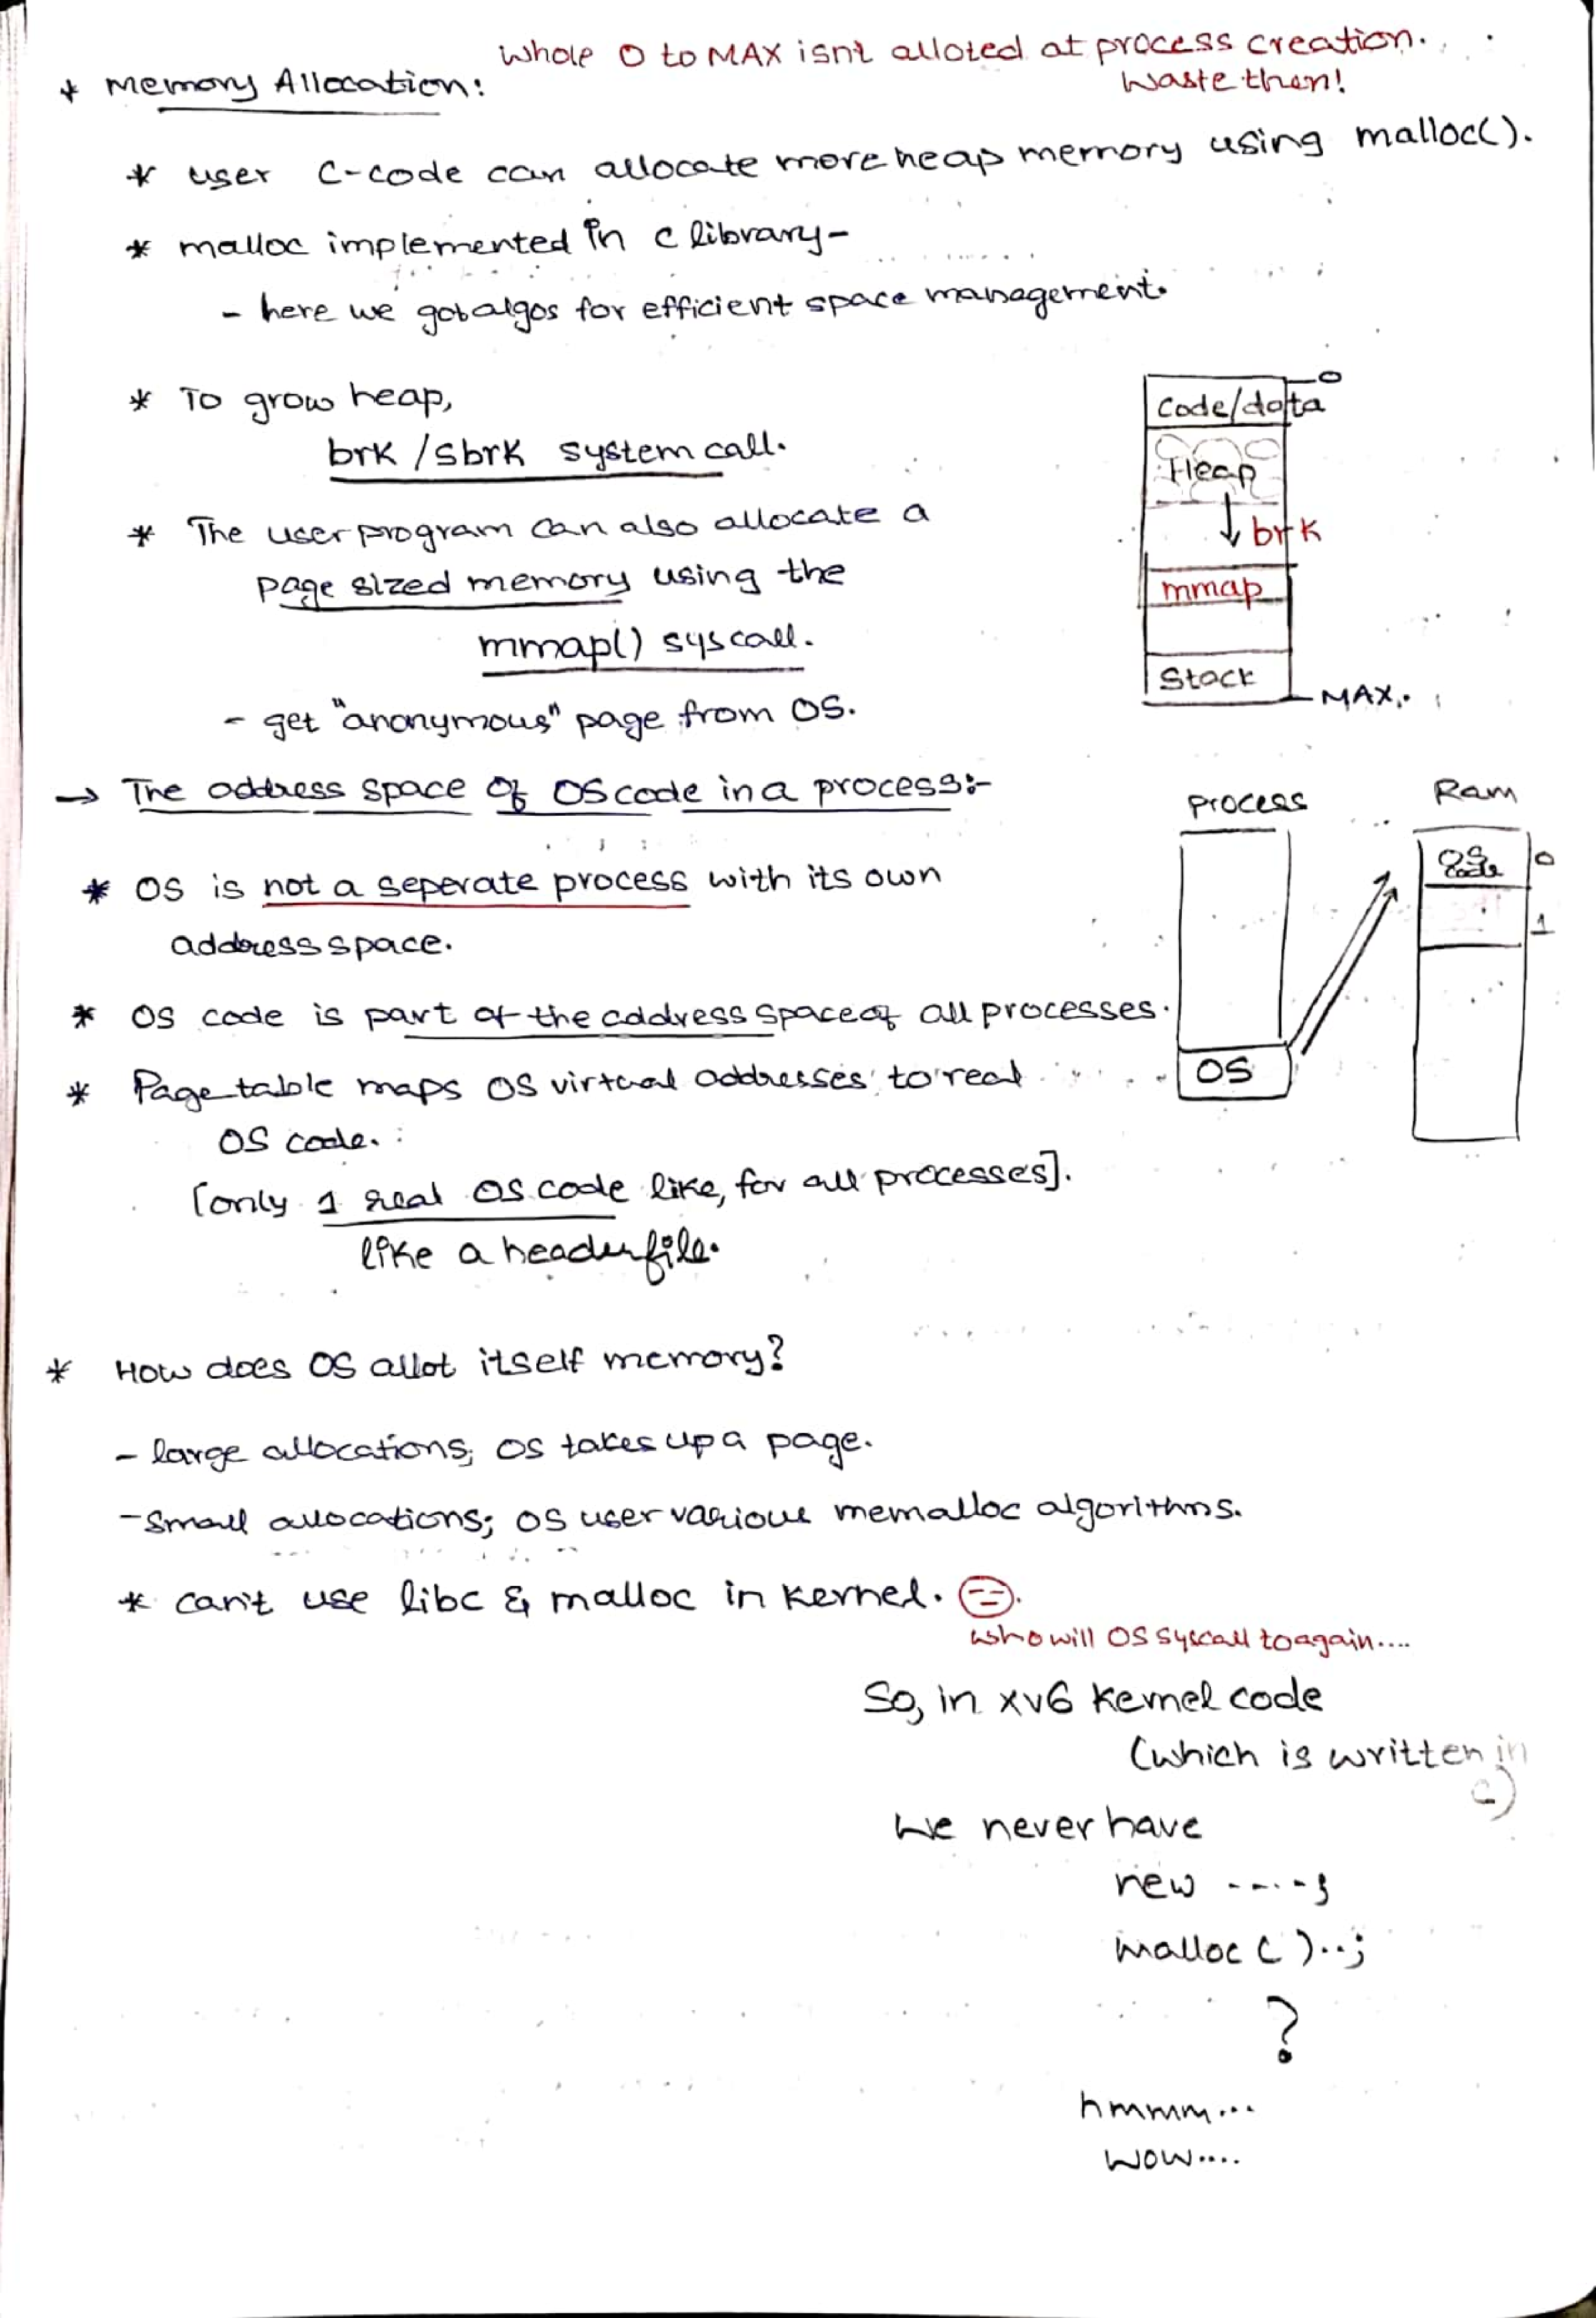 Whole 0 to MAX isnt alloted at process creation.
Waste then!
* Memory Allocation:
* user C-code can allocate more heap memory using malloc().
* malloc implemented in c library-
- here we got algos for efficient space management.
* To grow heap,
brk /sbrk system call.
* The user program can also allocate a
page sized memory using the
mmap() syscall.
- get "anonymous" page from OS.
0
Code/data
Heap
↓ brk
mmap
Stack
MAX.
→ The address space of OS code in a process:-
* OS is not a seperate process with its own
address space.
* OS code is part of the address space of all processes.
* Page table maps OS virtual addresses to real
OS code.
[only 1 real OS code like, for all processes].
like a header file.
process
OS
Ram
OS code
0
1
* How does OS allot itself memory?
- large allocations; OS takes up a page.
- Small allocations; OS user various memalloc algorithms.
* can't use libc & malloc in kernel.
who will OS syscall to again....
So, in xv6 kernel code
(which is written in
c)
We never have
new -----;
malloc ( )..;
?
hmmm...
wow....